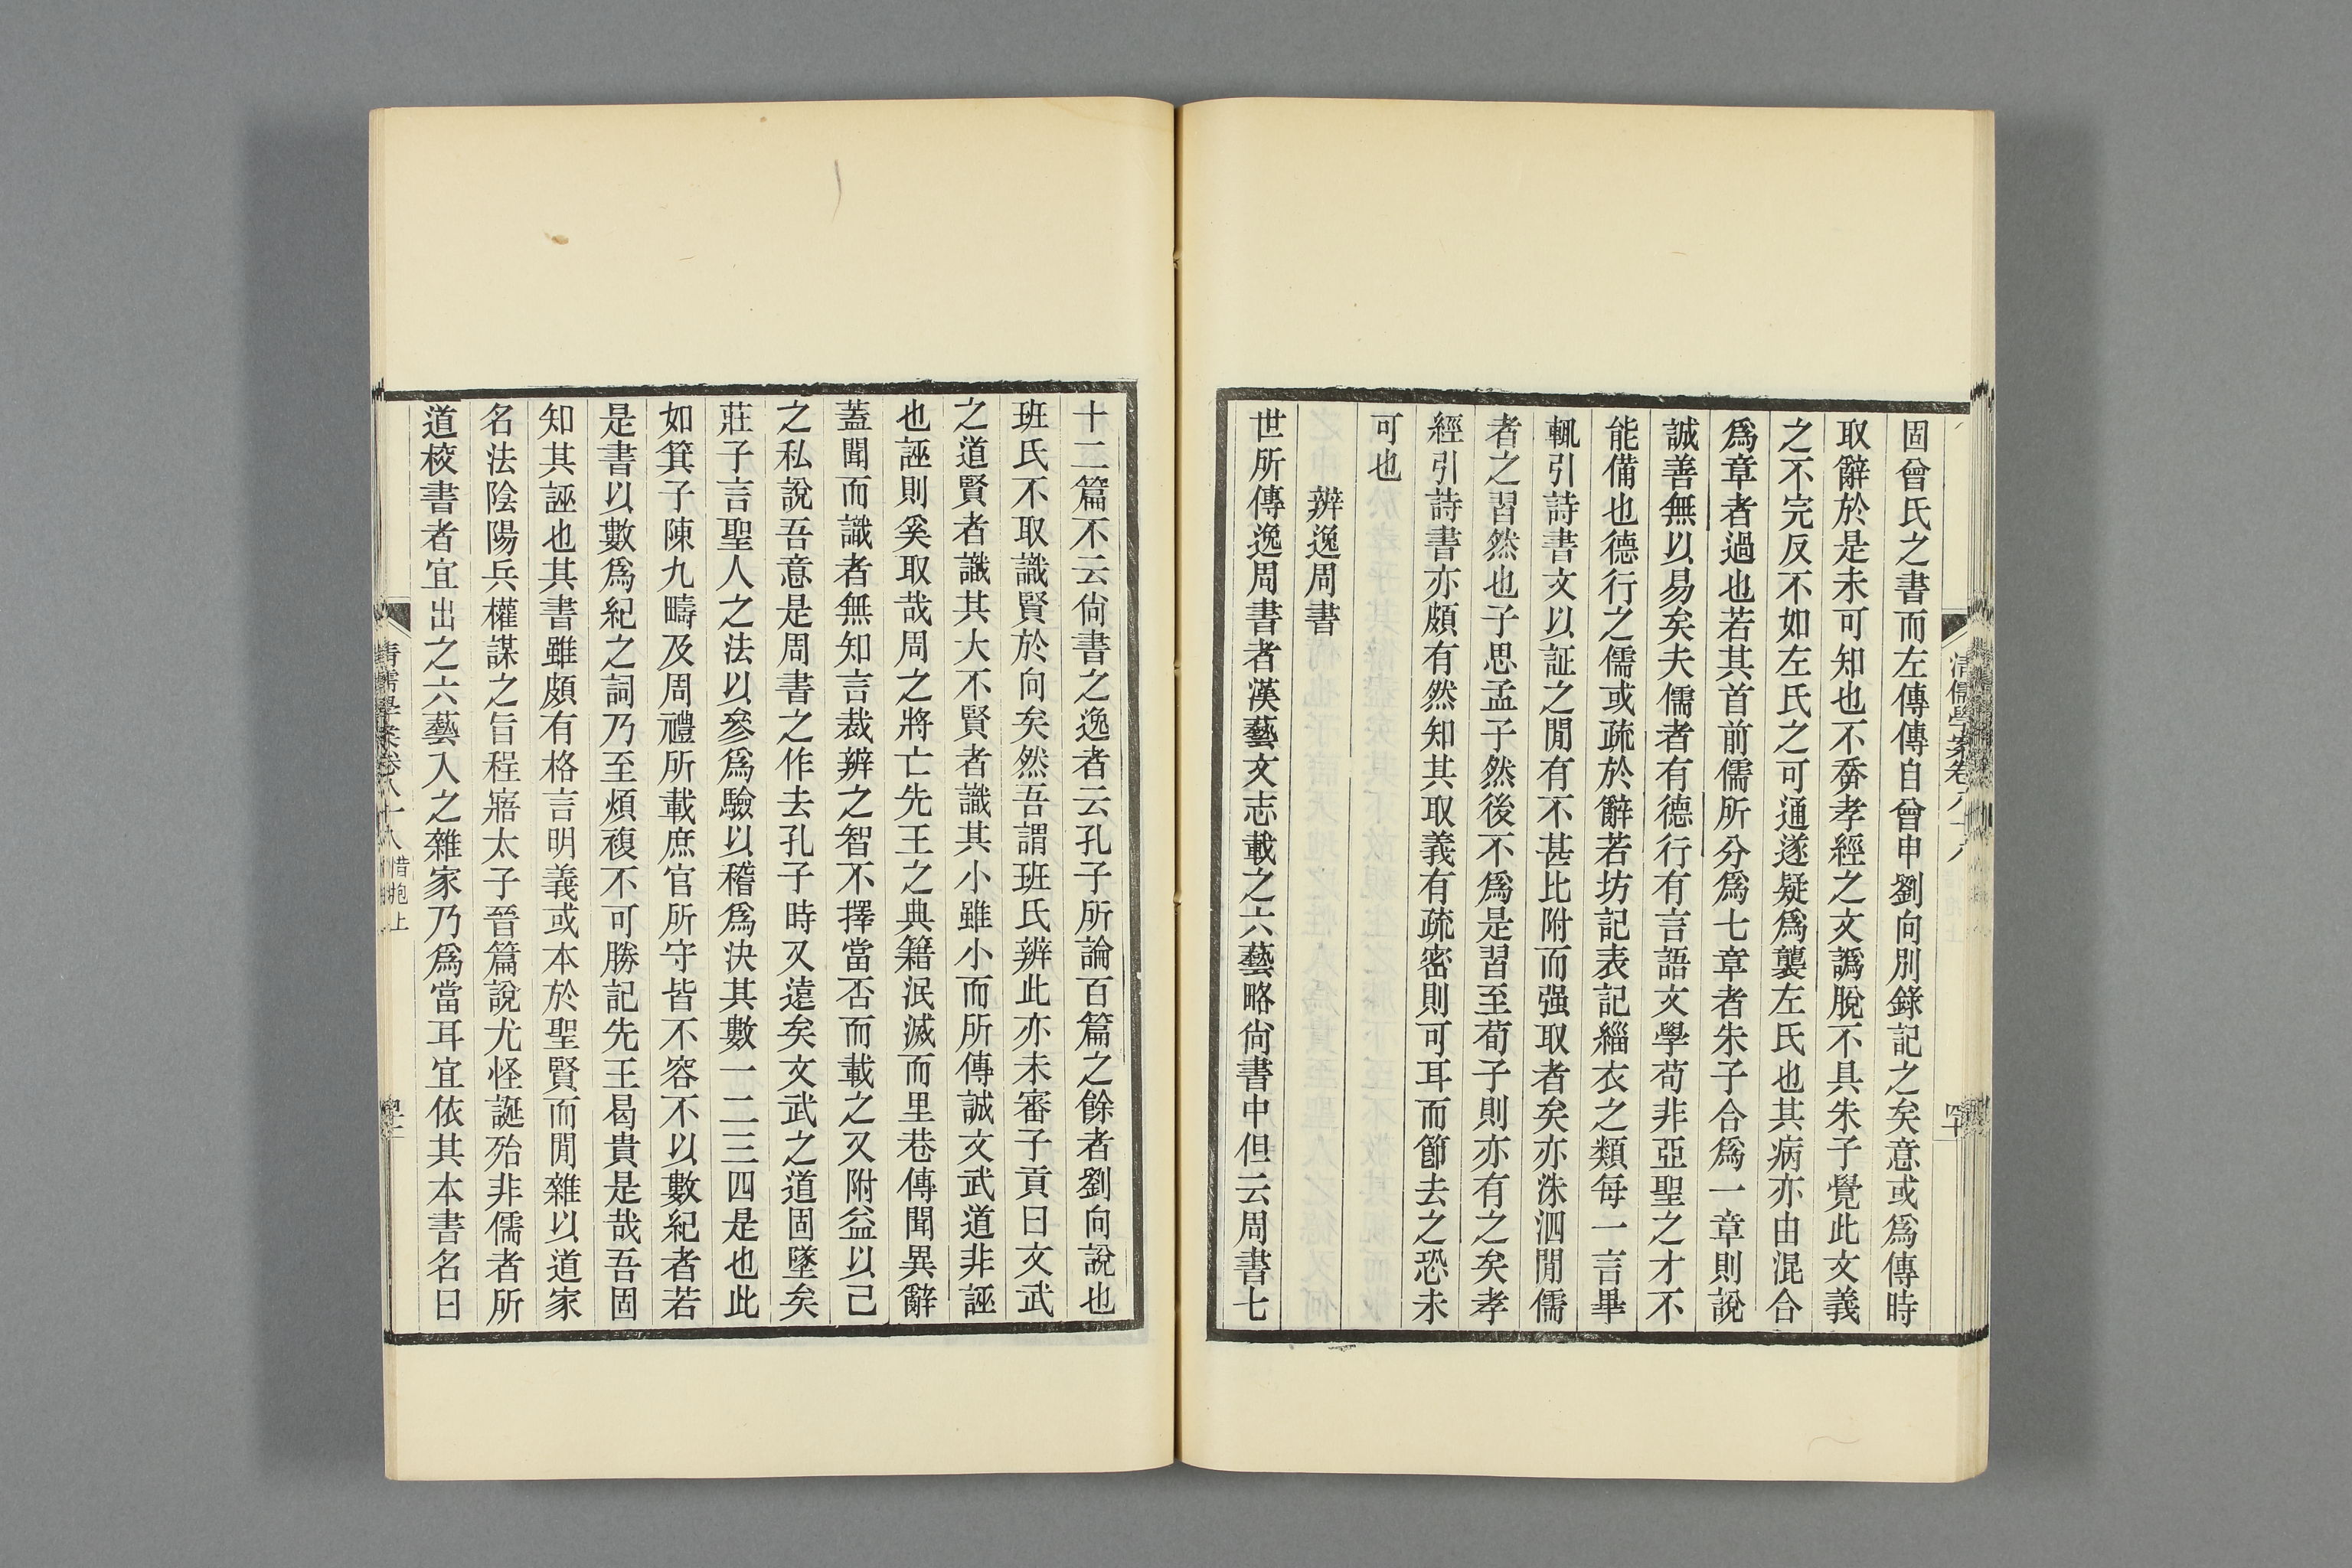 固曾氏之書而左傳傳自曾申劉向別錄記之矣意或爲傳時
取辭於是未可知也不㫺孝經之文譌脫不具朱子覺此文義
之不完反不如左氏之可通遂疑爲襲左氏也其病亦由混合
爲章者過也若其首前儒所分爲七章者朱子合爲一章則說
誠善無以易矣夫儒者有德行有言語文學苟非亞聖之才不
能備也德行之儒或疏於辭若坊記表記緇衣之類每一言畢
輒引詩書文以証之閒有不甚比附而强取者矣亦洙泗閒儒
者之習然也子思孟子然後不爲是習至荀子則亦有之矣孝
經引詩書亦頗有然知其取義有疏密則可耳而節去之恐未
可也
辨逸周書
世所傳逸周書者漢藝文志載之六藝略尙書中但云周書七
清儒學案卷八十八
四十
十二篇不云尙書之逸者云孔子所論百篇之餘者劉向說也
班氏不取識賢於向矣然吾謂班氏辨此亦未審子貢曰文武
之道賢者識其大不賢者識其小雖小而所傳誠文武道非誣
也誣則奚取哉周之將亡先王之典籍泯滅而里巷傳聞異辭
蓋聞而識者無知言裁辨之智不擇當否而載之又附益以己
之私說吾意是周書之作去孔子時又遠矣文武之道固墜矣
莊子言聖人之法以參爲驗以稽爲決其數一二三四是也此
如箕子陳九疇及周禮所載庶官所守皆不容不以數紀者若
是書以數爲紀之詞乃至煩複不可勝記先王曷貴是哉吾固
知其誣也其書雖頗有格言明義或本於聖賢而閒雜以道家
名法陰陽兵權謀之旨程寤太子晉篇說尤怪誕殆非儒者所
道校書者宜出之六藝入之雜家乃爲當耳宜依其本書名曰
清儒學案卷八十八 惜抱上